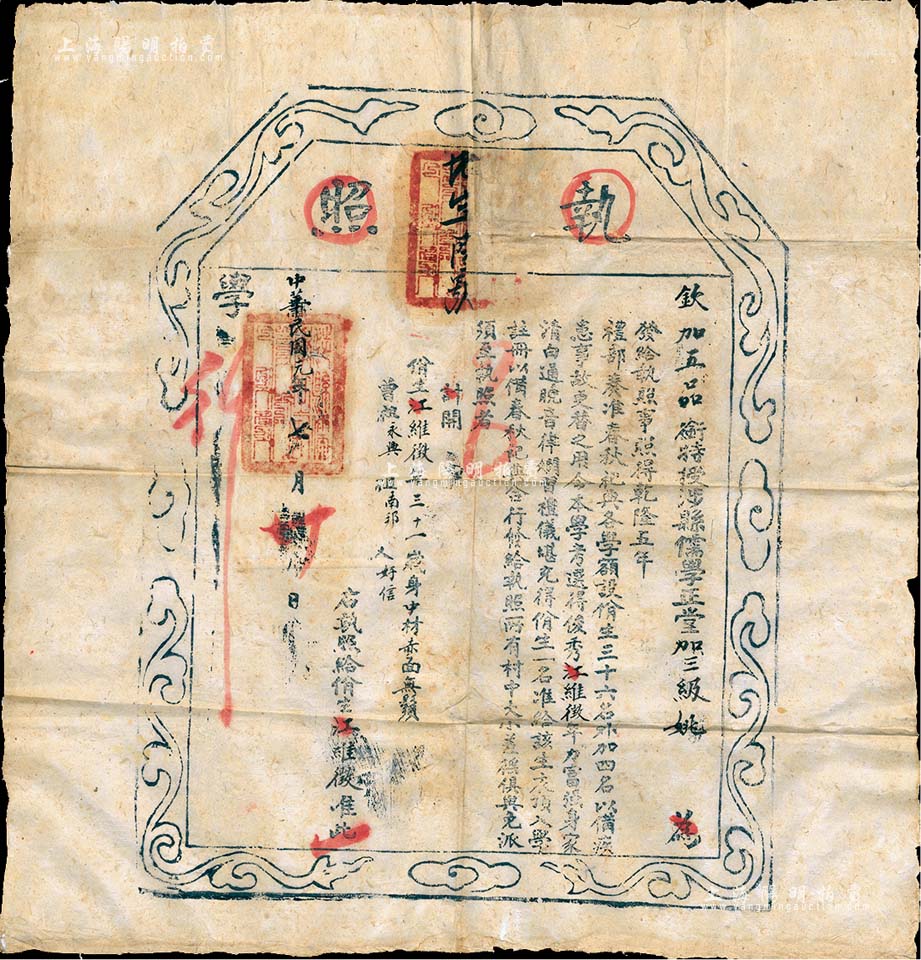 執照
欽加五品銜特授涉縣儒學正堂加三級姚 為
發給執照事照得乾隆五年
禮部奏准春秋祀典各學額設佾生三十六名外加四名以備
事故更替之用今本學考選得俊秀江維徵年力富強身家
清白通曉音律嫻習禮儀堪充得佾生一名准給該生衣頂入學
註冊以備春秋祀典合行修給執照所有村中大小差徭俱與免派
須至執照者
計開
佾生江維徵年三十一歲身中材赤面無鬚
曾祖永興 祖南祁 父好信
右執照給佾生江維徵准此
中華民國元年七月廿日
學
上海陽明拍賣
www.yangmingauction.com
上海陽明拍賣
www.yangmingauction.com
上海陽明拍賣
www.yangmingauction.com